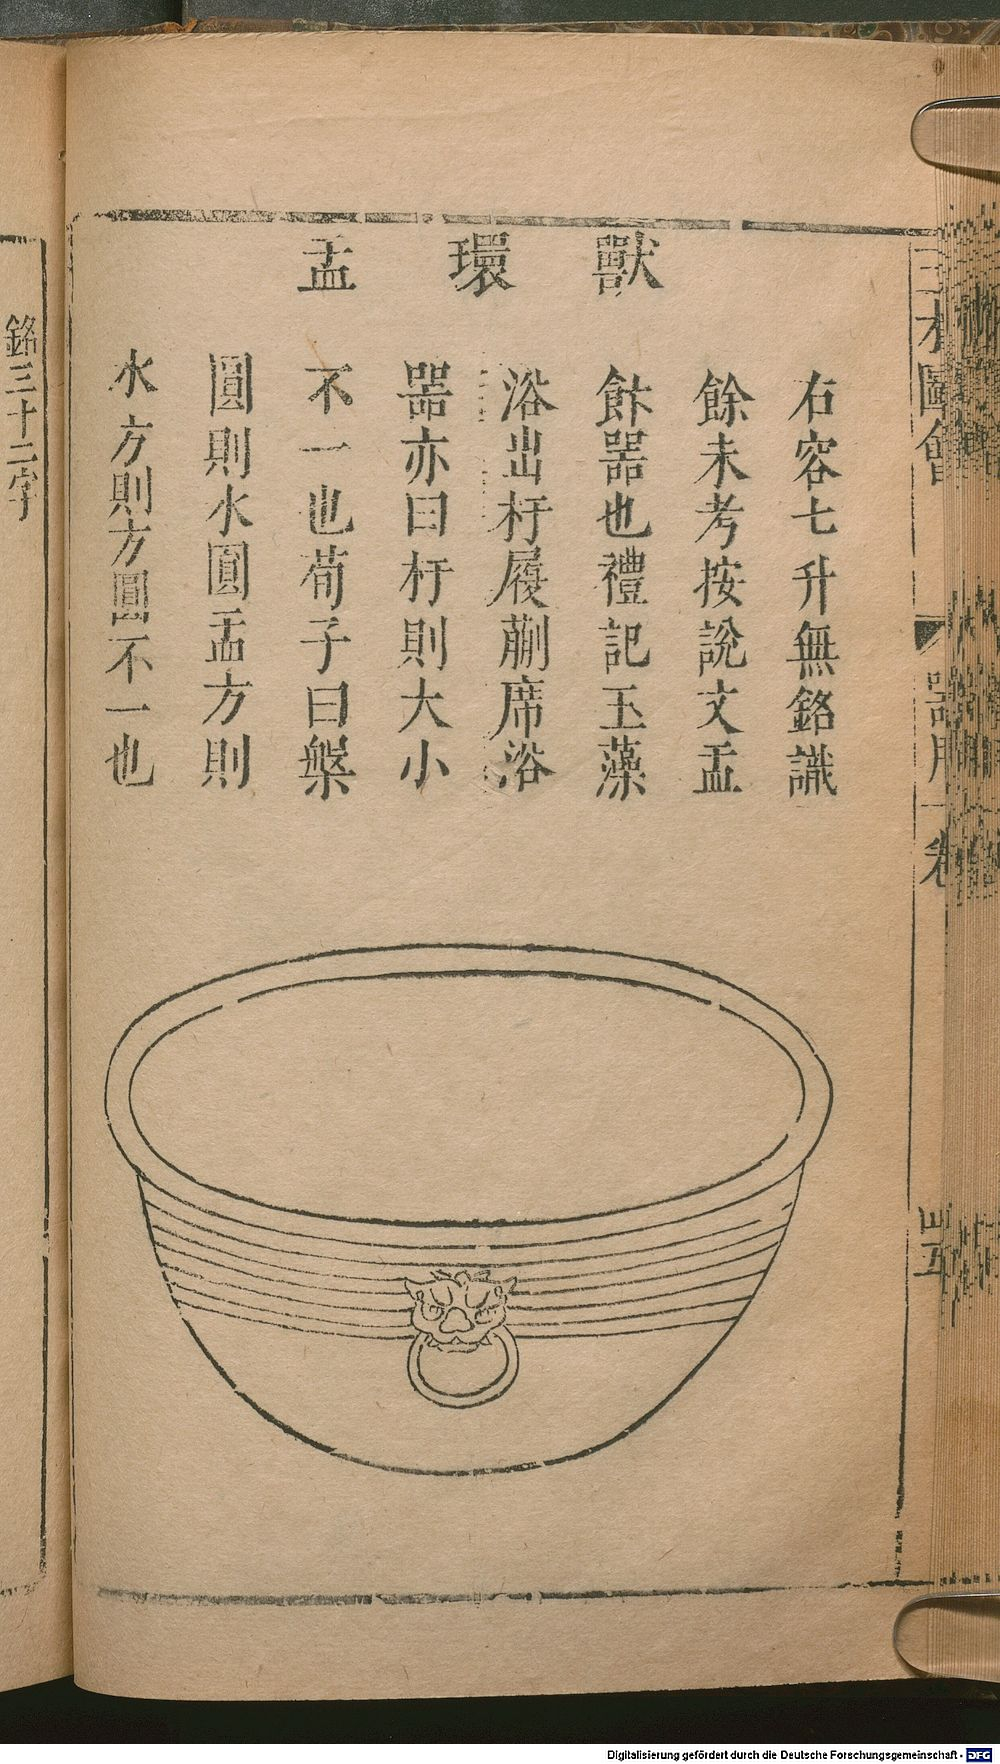 獸環盂
右容七升無銘識
餘未考按說文盂
飲器也禮記玉藻
浴出杅履蒯席浴
器亦曰杅則大小
不一也荀子曰槃
圓則水圓盂方則
水方則方圓不一也
銘三十二字
三才圖會
器用一卷
Digitalisierung gefördert durch die Deutsche Forschungsgemeinschaft - DFG